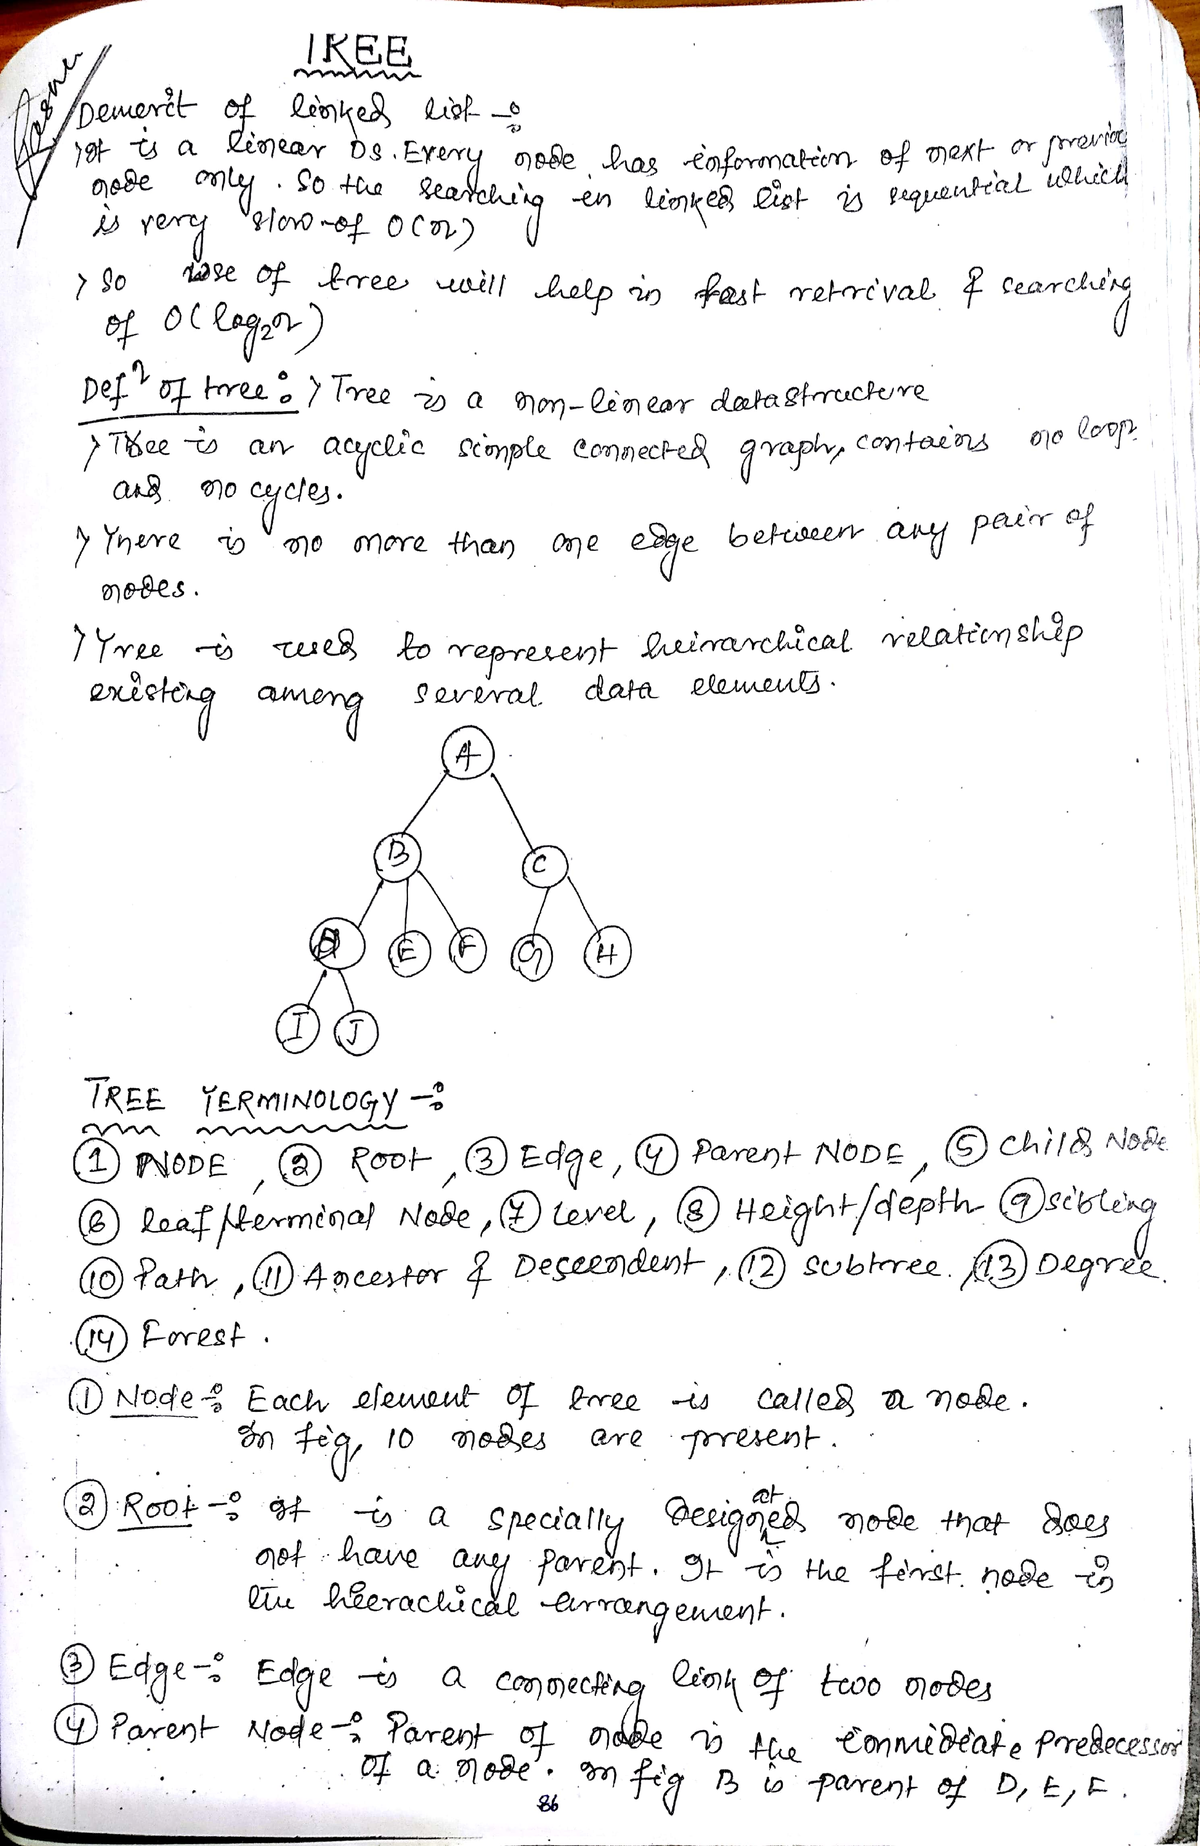 TREE
Demerit of linked list -:
> It is a linear DS. Every node has information of next or previous
node only. So the searching in linked list is sequential which
is very slow of O(n)
> So use of tree will help in fast retrival & searching
of O(log₂n)
Defⁿ of tree: > Tree is a non-linear datastructure
> Tree is an acyclic simple connected graph, contains no loop
and no cycles.
> There is no more than one edge between any pair of
nodes.
> Tree is used to represent heirarchical relationship
existing among several data elements.
A
B C
D E F G H
I J
TREE TERMINOLOGY -:
① NODE, ② Root, ③ Edge, ④ Parent NODE, ⑤ Child Node
⑥ leaf/terminal Node, ⑦ Level, ⑧ Height/depth ⑨ sibling
⑩ Path, ⑪ Ancestor & Descendent, ⑫ subtree, ⑬ Degree
⑭ Forest.
① Node -: Each element of tree is called a node.
In fig, 10 nodes are present.
② Root -: It is a specially designated node that does
not have any parent. It is the first node in
the hierachical arrangement.
③ Edge -: Edge is a connecting link of two nodes
④ Parent Node -: Parent of node is the immidiate predecessor
of a node. In fig B is parent of D, E, F.
86